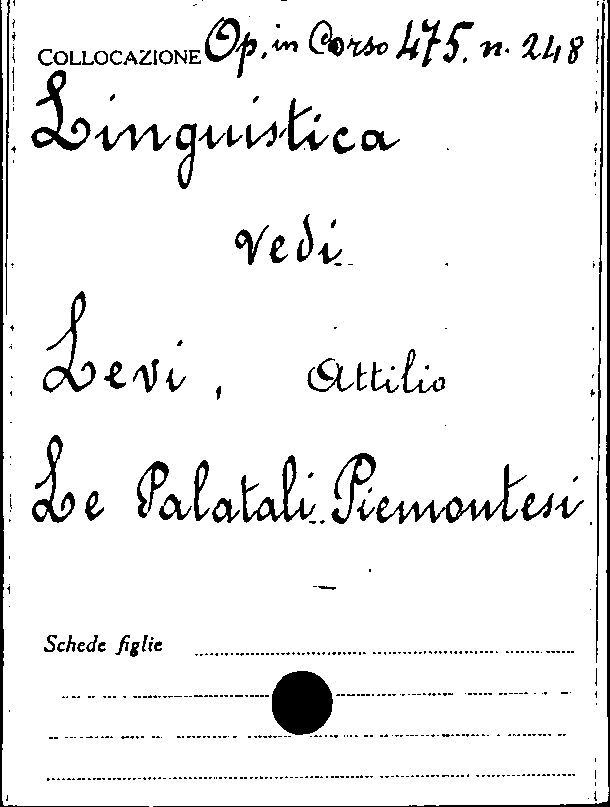 COLLOCAZIONE Op. in Corso 475. n. 248
Linguistica
vedi
Levi, Attilio
Le Palatali Piemontesi
Schede figlie